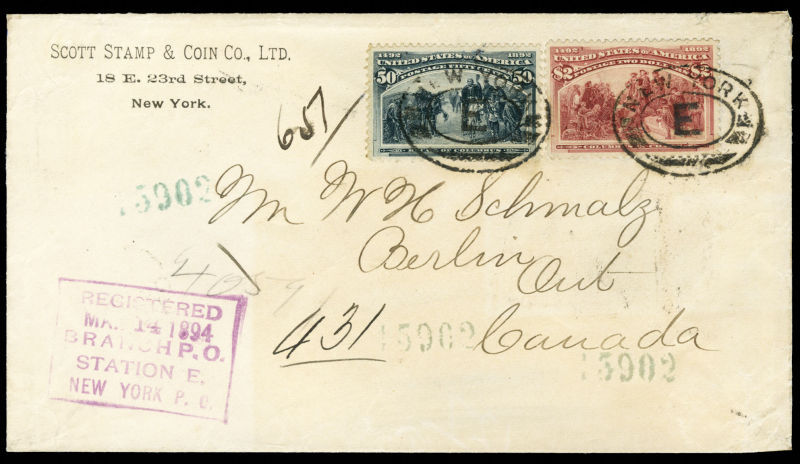 SCOTT STAMP & COIN CO., LTD.
18 E. 23rd Street,
New York.
1492 1892
UNITED STATES OF AMERICA
50 POSTAGE FIFTY 50
OF COLUMBUS
1492 1892
UNITED STATES OF AMERICA
$2 POSTAGE TWO DOLLARS $2
COLUMBUS
NEW YORK
E
NEW YORK
E
607
15902
Mr W H Schmalz
Berlin
Ont
Canada
4059
431
15902
15902
REGISTERED
MAR 14 1894
BRANCH P.O.
STATION E.
NEW YORK P. O.